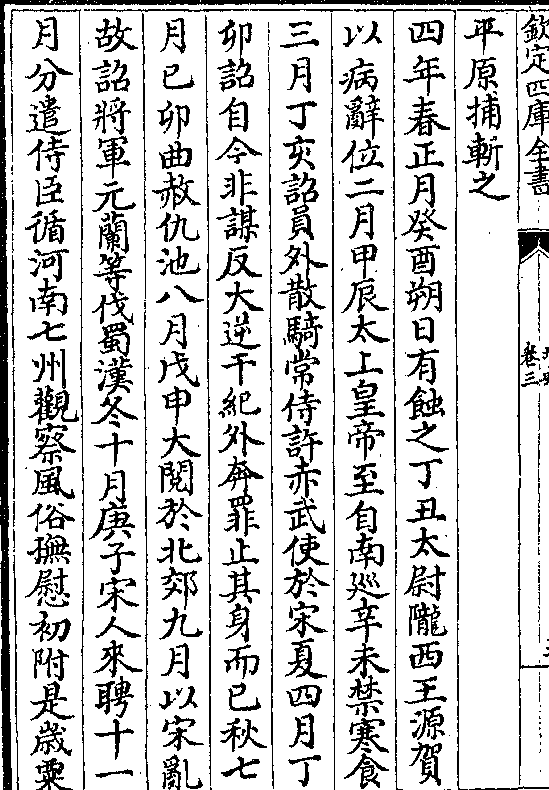 欽定四庫全書
北史
卷三
平原捕斬之
四年春正月癸酉朔日有蝕之丁丑太尉隴西王源賀
以病辭位二月甲辰太上皇帝至自南廵辛未禁寒食
三月丁亥詔員外散騎常侍許赤武使於宋夏四月丁
卯詔自今非謀反大逆干紀外奔罪止其身而已秋七
月已卯曲赦仇池八月戊申大閱於北郊九月以宋亂
故詔將軍元蘭等伐蜀漢冬十月庚子宋人來聘十一
月分遣侍臣循河南七州觀察風俗撫慰初附是歲粟